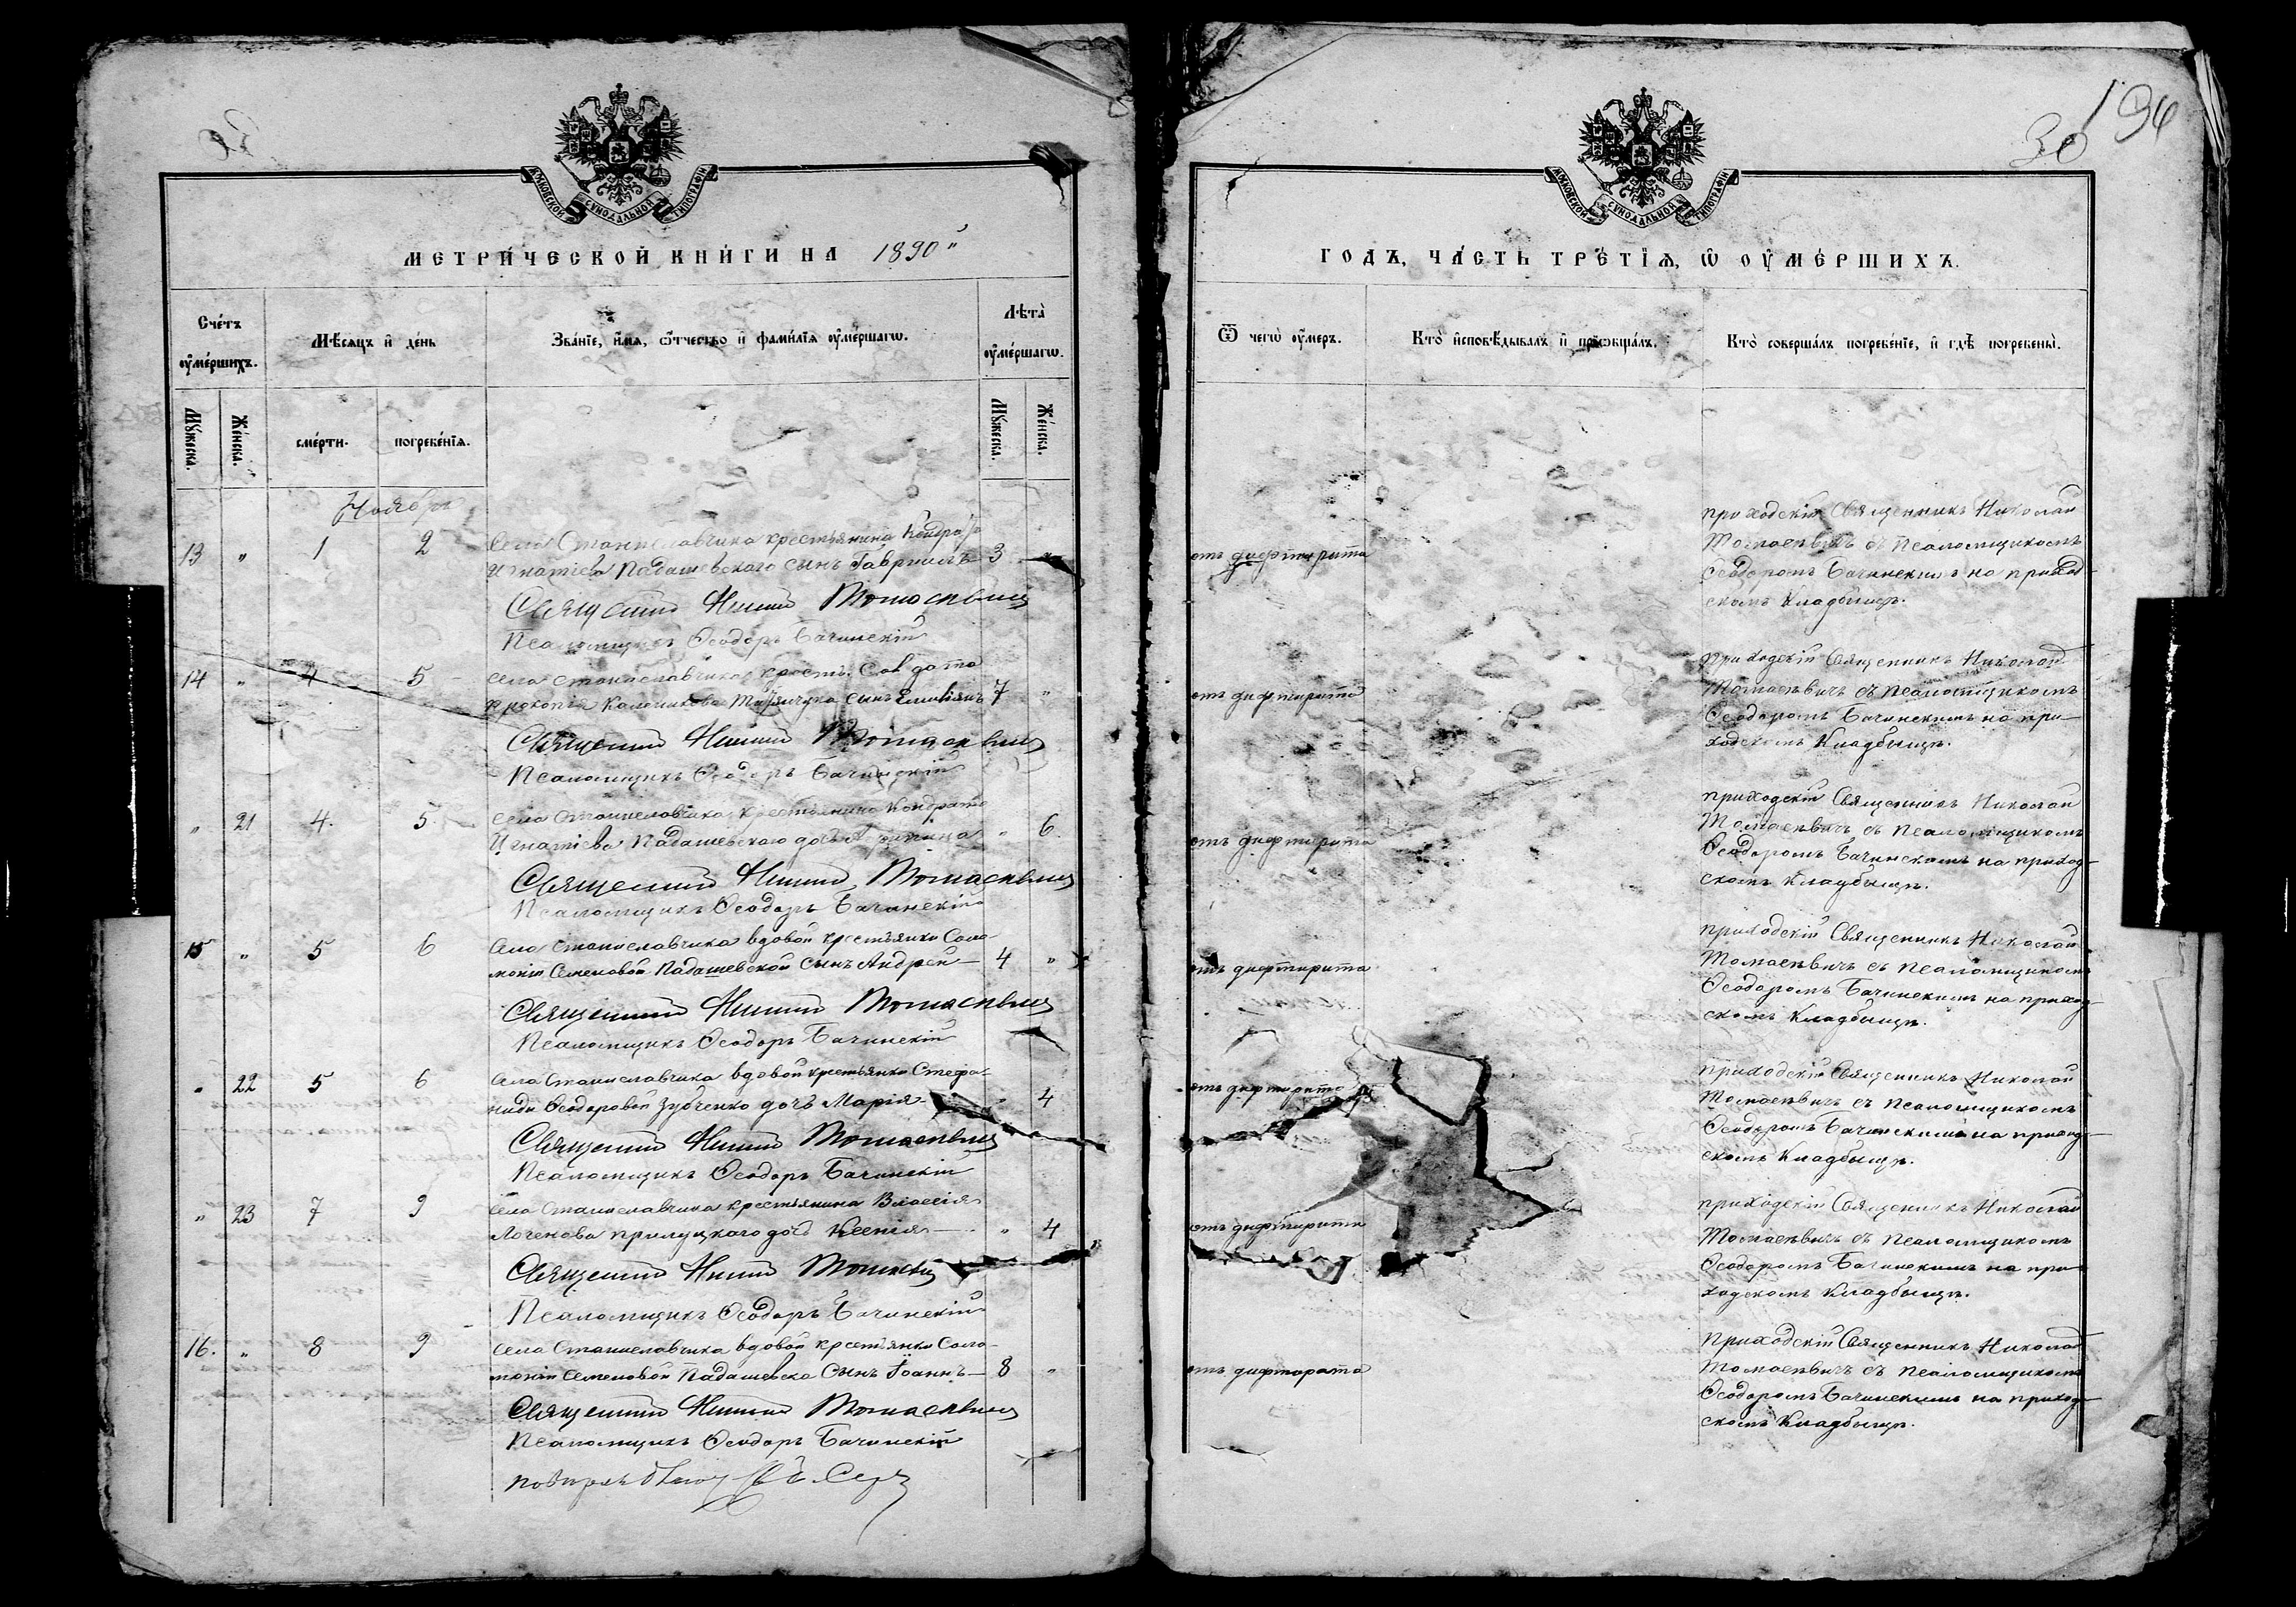 196
30
МОСКОВСКОЙ СУНОДАЛЬНОЙ ТИПОГРАФІИ
МЕТРИ́ЧЕСКОЙ КНИ́ГИ НА 1890
Сче́тъ ᲂу҆ме́ршихъ.
Мѣ́сяцъ и҆ де́нь
Зва́нїе, и҆́мѧ, ѻ҆́тчество и҆ фами́лїѧ ᲂу҆ме́ршагѡ.
Лѣ́та ᲂу҆ме́ршагѡ.
Мꙋ́жеска. Же́нска. сме́рти. погребе́нїѧ. Мꙋ́жеска. Же́нска.
Ноябрь
13 " 1 2 Села Станиславчика крестьянина Кондрата
Игнатіева Падашевскаго сынъ Гавріилъ 3
Священникъ Николай Томасевичъ
Псаломщикъ Ѳеодоръ Бачинскій
14 " 4 5 Села Станиславчика крест. Солдата
Прокопія сынъ 7 "
Священникъ Николай Томасевичъ
Псаломщикъ Ѳеодоръ Бачинскій
" 21 4. 5. Села Станиславчика крестьянина Кондрата
Игнатіева Падашевскаго дочь " 6.
Священникъ Николай Томасевичъ
Псаломщикъ Ѳеодоръ Бачинскій
15 " 5 6 Села Станиславчика вдовой крестьянки Соло-
моніи Семеновой Падашевской сынъ Андрей 4 "
Священникъ Николай Томасевичъ
Псаломщикъ Ѳеодоръ Бачинскій
" 22 5 6 Села Станиславчика вдовой крестьянки Стефа-
ниды Ѳеодоровой Зубченко дочь Марія 4
Священникъ Николай Томасевичъ
Псаломщикъ Ѳеодоръ Бачинскій
" 23 7 9 Села Станиславчика крестьянина Власія
Логенова Прилуцкаго дочь Ксенія " 4
Священникъ Николай Томасевичъ
Псаломщикъ Ѳеодоръ Бачинскій
16. " 8 9 Села Станиславчика вдовой крестьянки Соло-
моніи Семеновой Падашевска сынъ Іоаннъ 8 "
Священникъ Николай Томасевичъ
Псаломщикъ Ѳеодоръ Бачинскій
МОСКОВСКОЙ СУНОДАЛЬНОЙ ТИПОГРАФІИ
ГОДЪ, ЧА́СТЬ ТРЕ́ТЇѦ, Ѡ҆ ОУ҆МЕ́РШИХЪ.
Ѿ чегѡ̀ ᲂу҆́меръ. Кто̀ и҆сповѣ́дывалъ и҆ прїѡбща́лъ. Кто̀ соверша́лъ погребе́нїе, и҆ гдѣ̀ погребены̀.
отъ дифтирита
приходскій Священникъ Николай
Томасевичъ съ псаломщикомъ
Ѳеодоромъ Бачинскимъ на приход-
скомъ кладбищѣ.
отъ дифтирита
приходскій Священникъ Николай
Томасевичъ съ псаломщикомъ
Ѳеодоромъ Бачинскимъ на при-
ходскомъ кладбищѣ.
отъ дифтирита
приходскій Священникъ Николай
Томасевичъ съ псаломщикомъ
Ѳеодоромъ Бачинскимъ на приход-
скомъ кладбищѣ.
отъ дифтирита
приходскій Священникъ Николай
Томасевичъ съ псаломщикомъ
Ѳеодоромъ Бачинскимъ на приход-
скомъ кладбищѣ.
отъ дифтирита
приходскій Священникъ Николай
Томасевичъ съ псаломщикомъ
Ѳеодоромъ Бачинскимъ на приход-
скомъ кладбищѣ.
отъ дифтирита
приходскій Священникъ Николай
Томасевичъ съ псаломщикомъ
Ѳеодоромъ Бачинскимъ на при-
ходскомъ кладбищѣ.
отъ дифтирита
приходскій Священникъ Николай
Томасевичъ съ псаломщикомъ
Ѳеодоромъ Бачинскимъ на приход-
скомъ кладбищѣ.